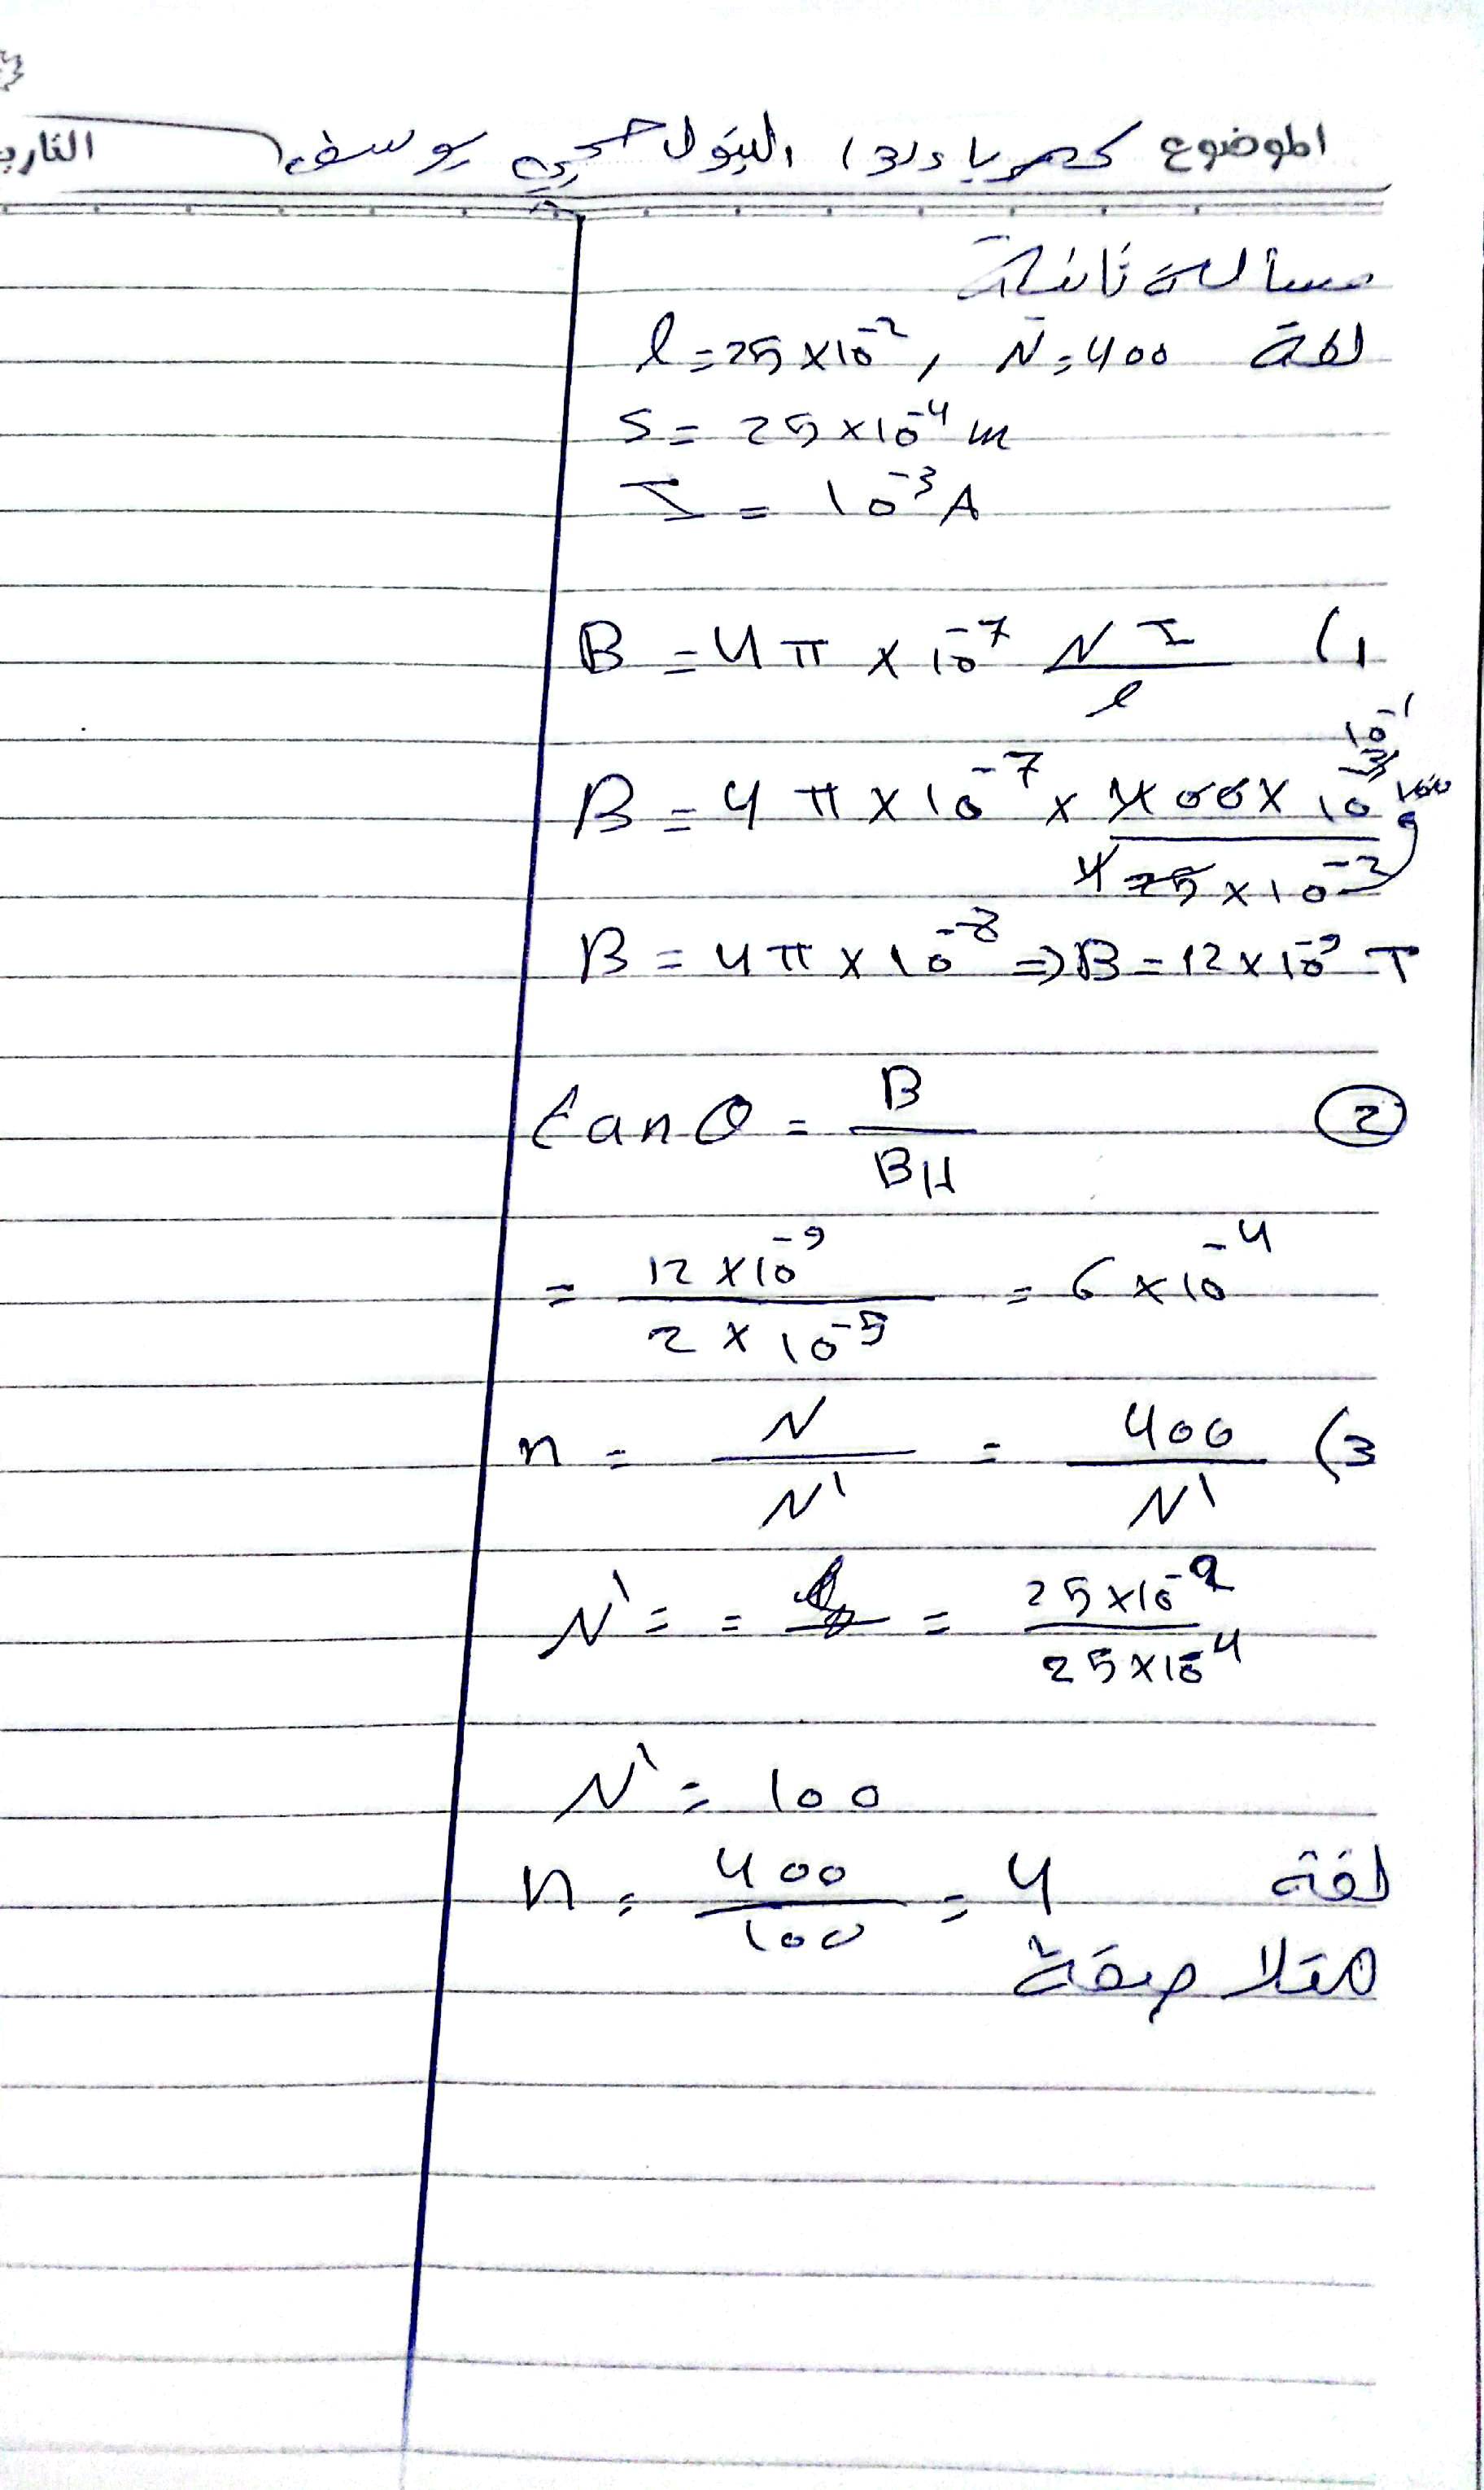 الموضوع كهرباء (3) البتول حجي يوسف
مسألة ثانية
l = 25 × 10⁻² , N = 400 لفة
S = 25 × 10⁻⁴ m
I = 10⁻³ A
1) B = 4π × 10⁻⁷ NI / l
B = 4π × 10⁻⁷ × 400 × 10⁻³ / 25 × 10⁻²
B = 4π × 10⁻⁸ ⇒ B = 12 × 10⁻⁹ T
② tanθ = B / BH
= 12 × 10⁻⁹ / 2 × 10⁻⁵ = 6 × 10⁻⁴
3) n = N / N' = 400 / N'
N' = = = 25 × 10⁻² / 25 × 10⁻⁴
N' = 100
n = 400 / 100 = 4 لفة
متلاصقة